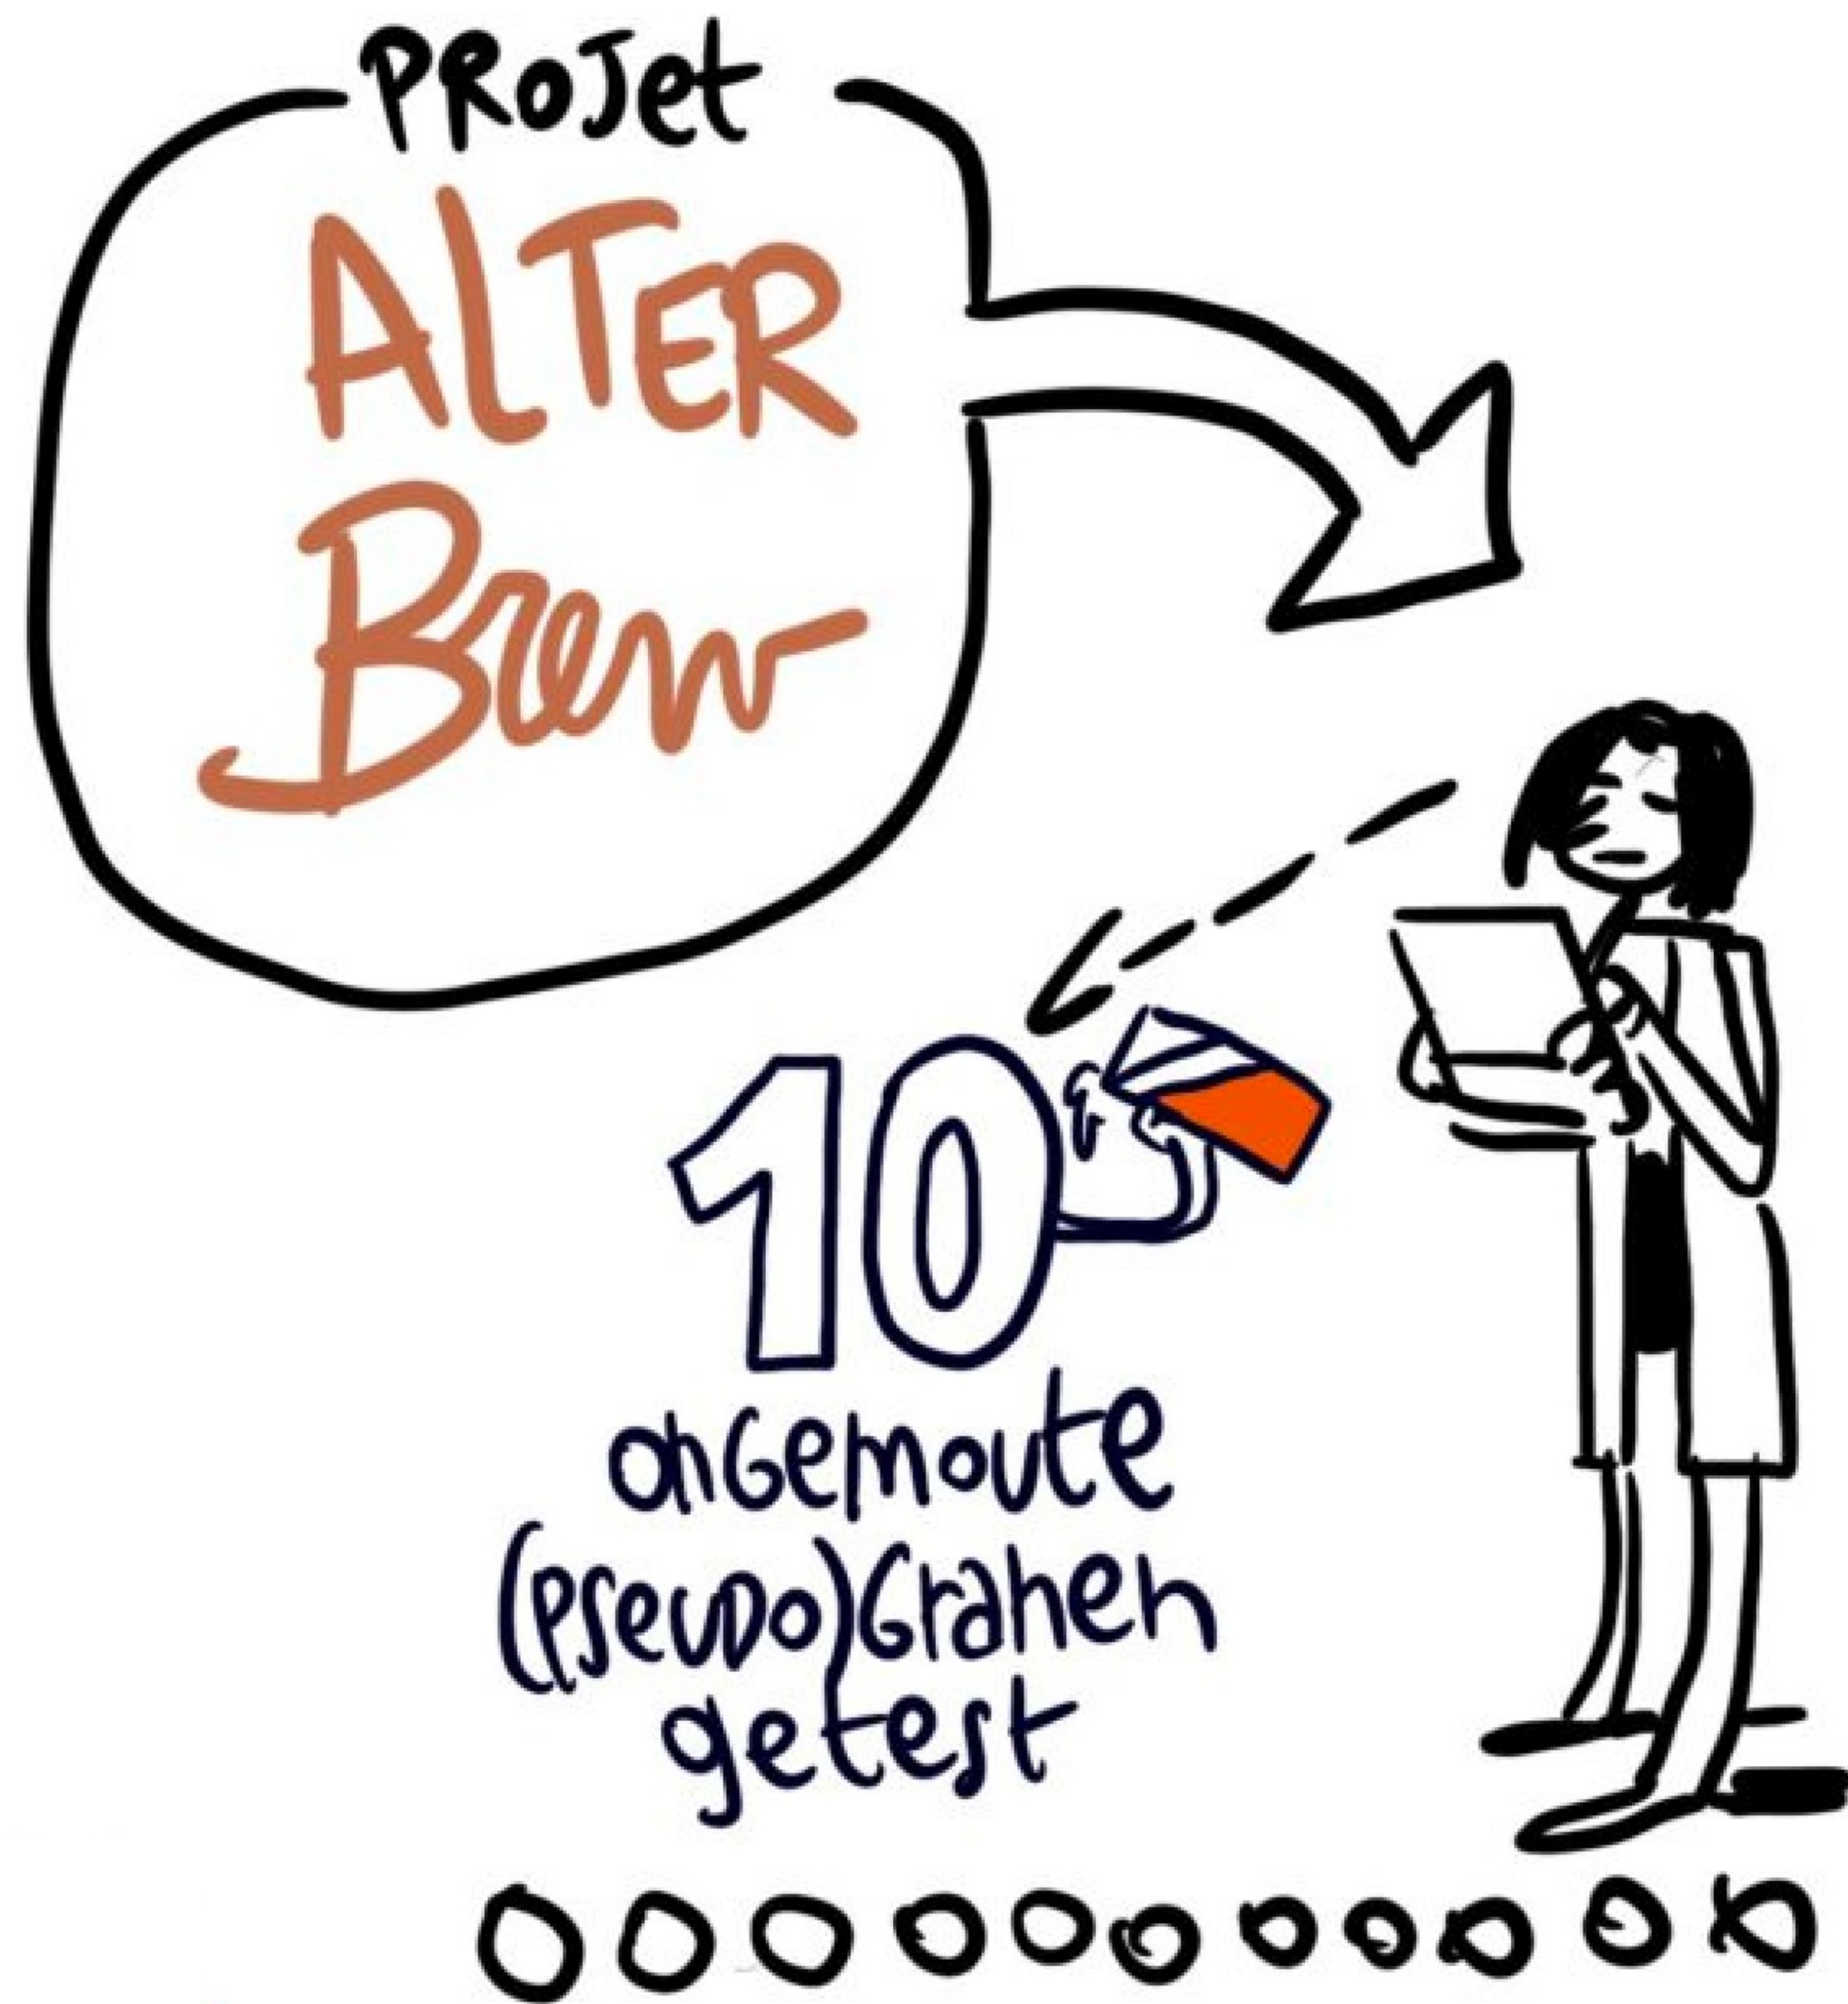 PROJet
ALTER
Brew
10
onGemoute
(PSeUDO)Granen
getest